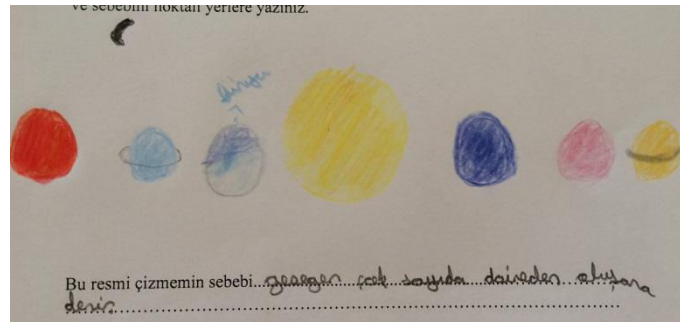 ve sebebini noktalı yerlere yazınız.
dünya
Bu resmi çizmemin sebebi...gezegen çok sayıda daireden oluşana
denir.....